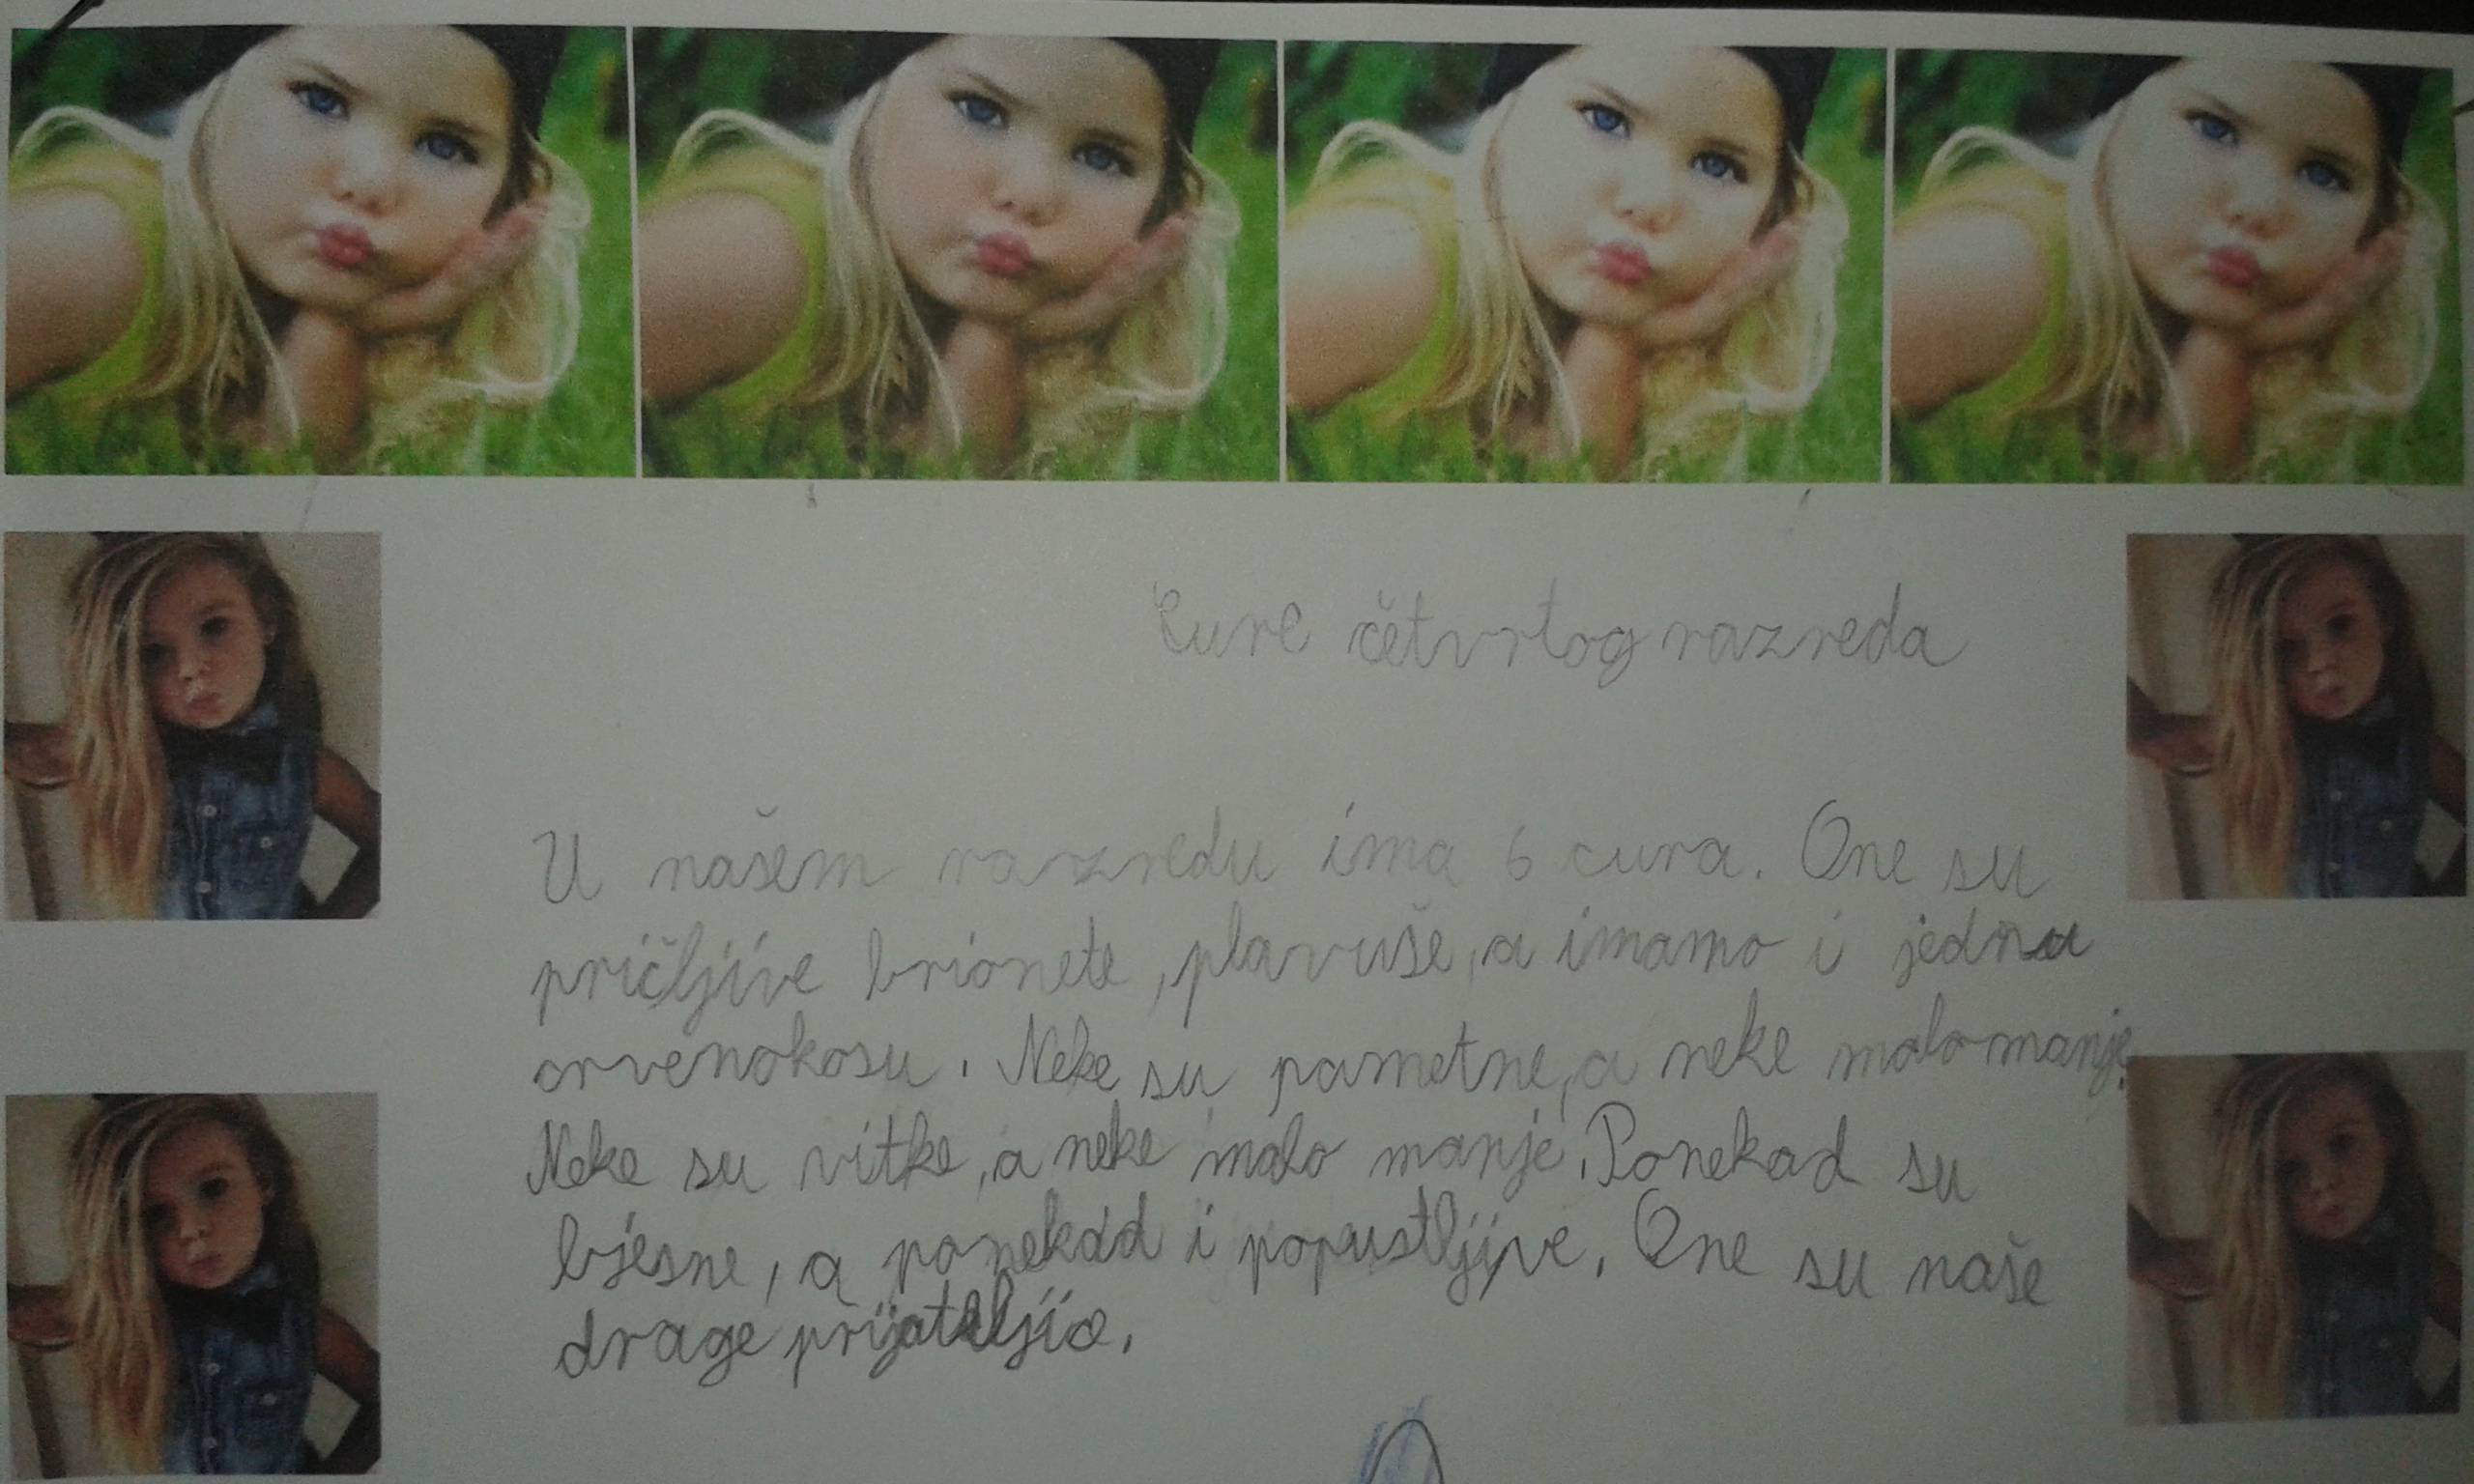 Cure četvrtog razreda
U našem razredu ima 6 cura. One su
pričljive brionete, plavuše, a imamo i jednu
crvenokosu. Neke su pametne, a neke malo manje.
Neke su vitke, a neke malo manje. Ponekad su
bjesne, a ponekad i popustljive. One su naše
drage prijateljic.